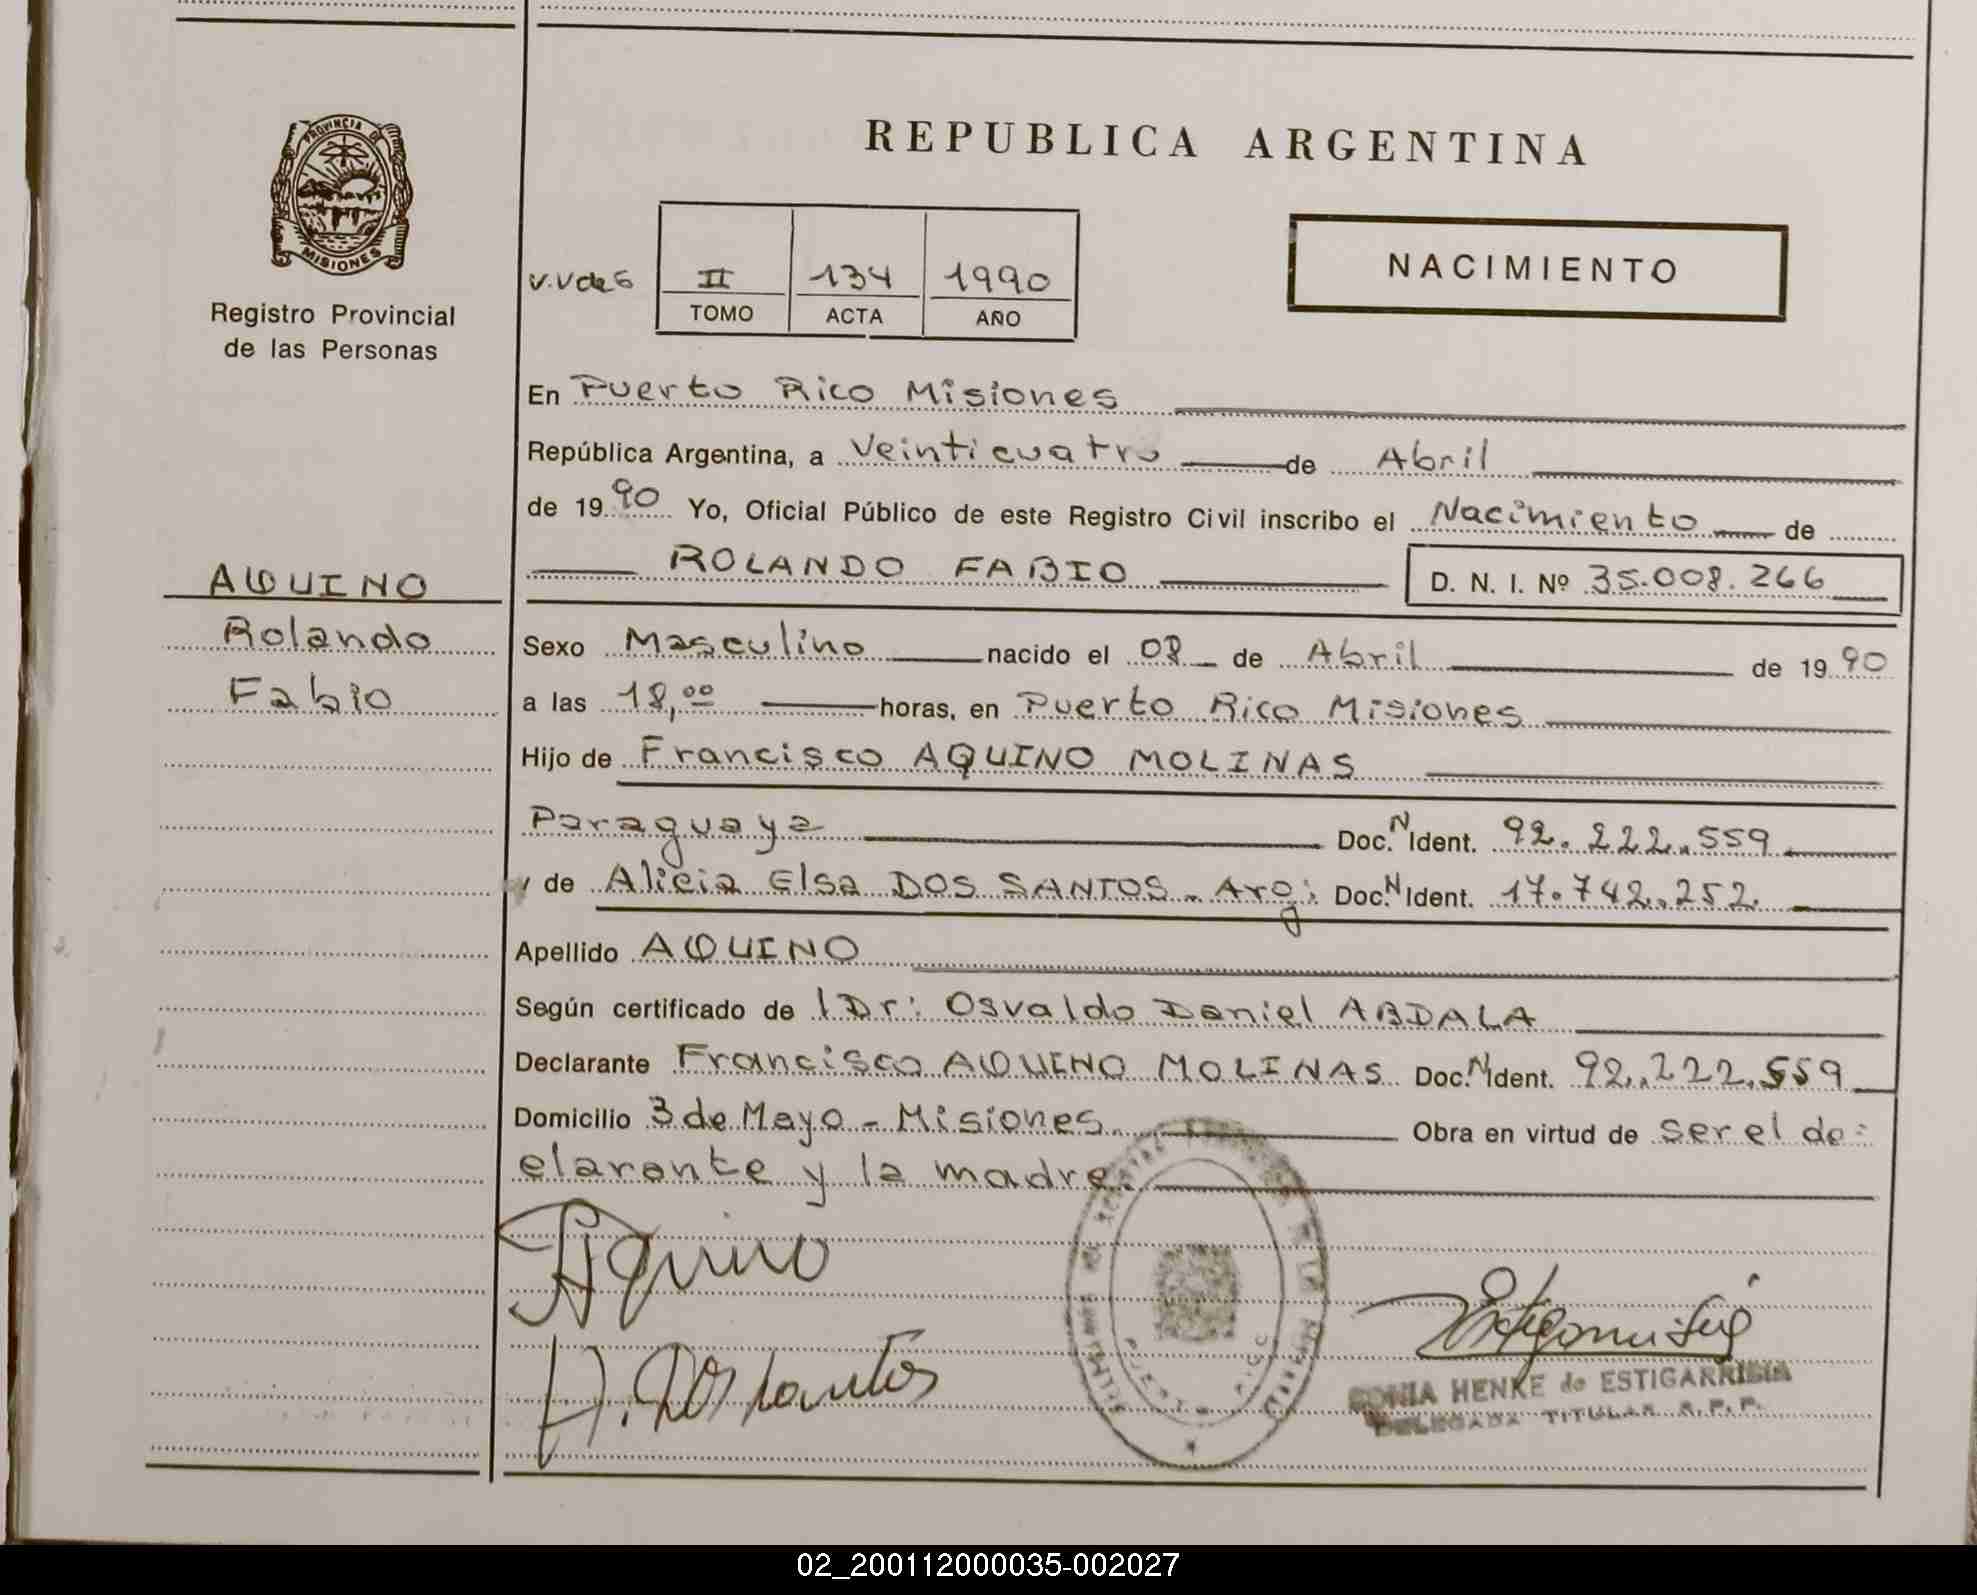 PROVINCIA DE
MISIONES
Registro Provincial
de las Personas
AQUINO
Rolando
Fabio
REPUBLICA ARGENTINA
V.V de G
II 134 1990
TOMO ACTA AÑO
NACIMIENTO
En Puerto Rico Misiones
República Argentina, a Veinticuatro de Abril
de 1990 Yo, Oficial Público de este Registro Civil inscribo el Nacimiento de
ROLANDO FABIO D. N. I. Nº 35.008.266
Sexo Masculino nacido el 08 de Abril de 1990
a las 18,00 horas, en Puerto Rico Misiones
Hijo de Francisco AQUINO MOLINAS
Paraguaya Doc. N Ident. 92.222.559
y de Alicia Elsa DOS SANTOS - Arg: Doc. N Ident. 17.742.252
Apellido AQUINO
Según certificado de l Dr: Osvaldo Daniel ABDALA
Declarante Francisco AQUINO MOLINAS Doc. N Ident. 92.222.559
Domicilio 3 de Mayo - Misiones Obra en virtud de ser el de-
clarante y la madre.
Aquino
A. Dos Santos
SONIA HENKE de ESTIGARRIBIA
DELEGADA TITULAR R.P.P.
02_200112000035-002027